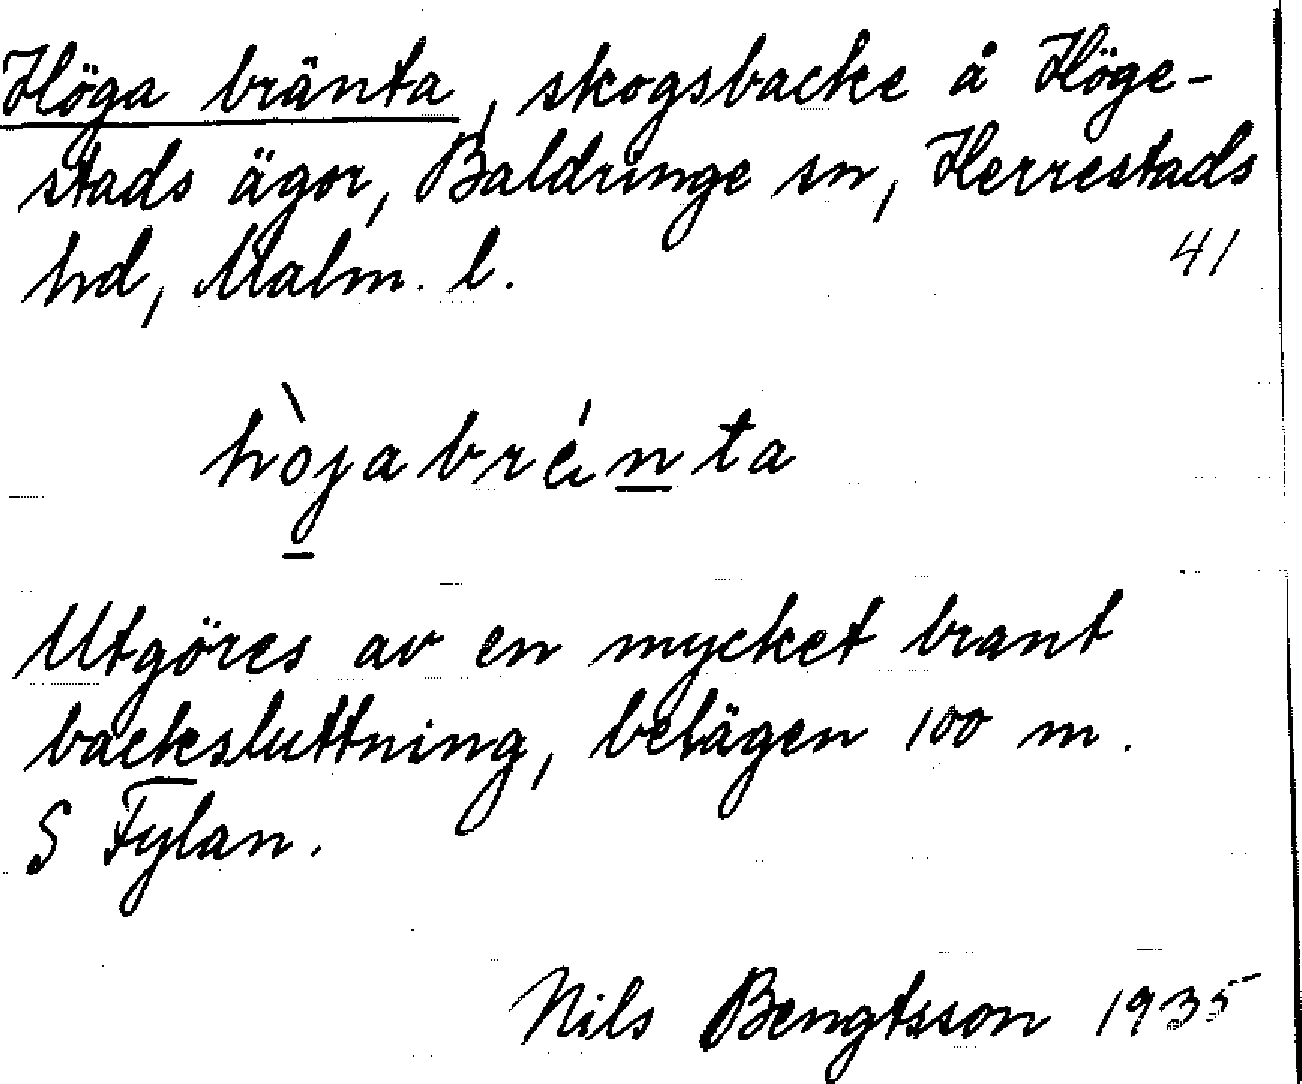 Höga bränta, skogsbacke å Höge-
stads ägor, Baldringe sn, Herrestads
hd, Malm. l.
41
hòjabrénta
Utgöres av en mycket brant
backsluttning, belägen 100 m.
S Fylan.
Nils Bengtsson 1935